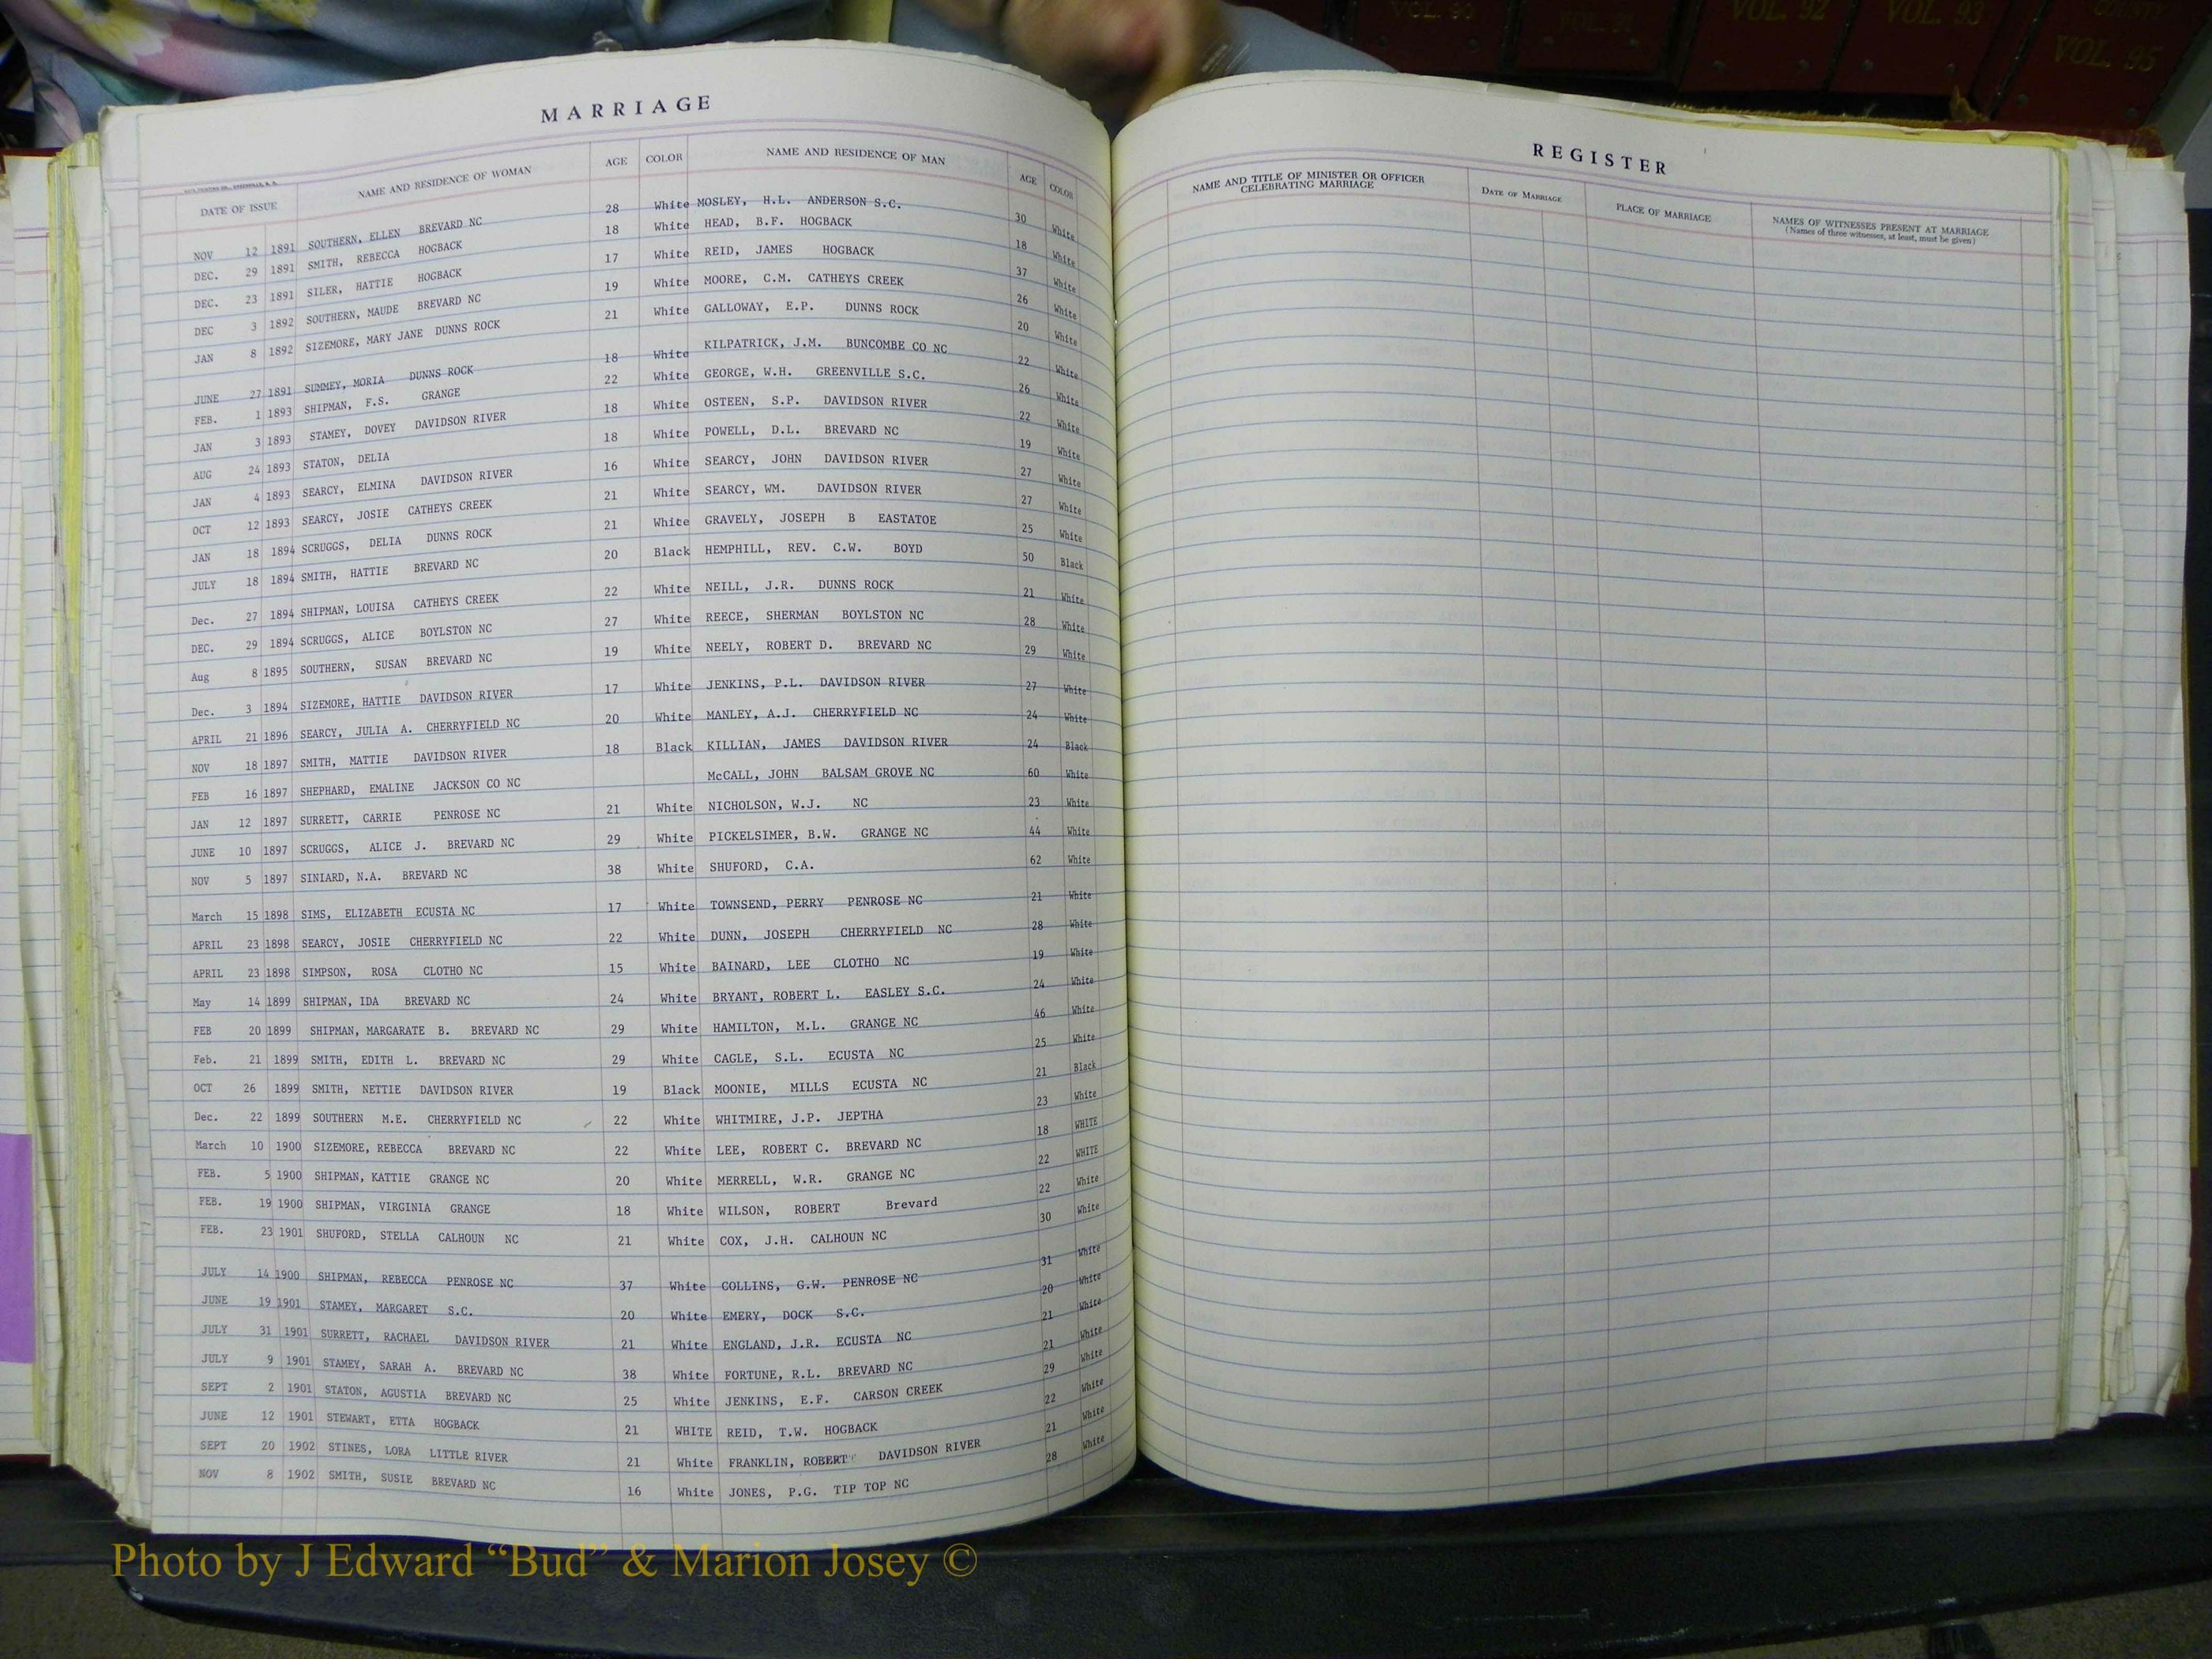 VOL. 90
VOL. 91
VOL. 92
VOL. 93
COUNTY
VOL. 95
MARRIAGE
DATE OF ISSUE NAME AND RESIDENCE OF WOMAN AGE COLOR NAME AND RESIDENCE OF MAN AGE COLOR
NOV 12 1891 SOUTHERN, ELLEN BREVARD NC 28 White MOSLEY, H.L. ANDERSON S.C. 30 White
DEC. 29 1891 SMITH, REBECCA HOGBACK 18 White HEAD, B.F. HOGBACK 18 White
DEC. 23 1891 SILER, HATTIE HOGBACK 17 White REID, JAMES HOGBACK 37 White
DEC 3 1892 SOUTHERN, MAUDE BREVARD NC 19 White MOORE, C.M. CATHEYS CREEK 26 White
JAN 8 1892 SIZEMORE, MARY JANE DUNNS ROCK 21 White GALLOWAY, E.P. DUNNS ROCK 20 White
JUNE 27 1891 SUMMEY, MORIA DUNNS ROCK 18 White KILPATRICK, J.M. BUNCOMBE CO NC 22 White
FEB. 1 1893 SHIPMAN, F.S. GRANGE 22 White GEORGE, W.H. GREENVILLE S.C. 26 White
JAN 3 1893 STAMEY, DOVEY DAVIDSON RIVER 18 White OSTEEN, S.P. DAVIDSON RIVER 22 White
AUG 24 1893 STATON, DELIA 18 White POWELL, D.L. BREVARD NC 19 White
JAN 4 1893 SEARCY, ELMINA DAVIDSON RIVER 16 White SEARCY, JOHN DAVIDSON RIVER 27 White
OCT 12 1893 SEARCY, JOSIE CATHEYS CREEK 21 White SEARCY, WM. DAVIDSON RIVER 27 White
JAN 18 1894 SCRUGGS, DELIA DUNNS ROCK 21 White GRAVELY, JOSEPH B EASTATOE 25 White
JULY 18 1894 SMITH, HATTIE BREVARD NC 20 Black HEMPHILL, REV. C.W. BOYD 50 Black
Dec. 27 1894 SHIPMAN, LOUISA CATHEYS CREEK 22 White NEILL, J.R. DUNNS ROCK 21 White
DEC. 29 1894 SCRUGGS, ALICE BOYLSTON NC 27 White REECE, SHERMAN BOYLSTON NC 28 White
Aug 8 1895 SOUTHERN, SUSAN BREVARD NC 19 White NEELY, ROBERT D. BREVARD NC 29 White
Dec. 3 1894 SIZEMORE, HATTIE DAVIDSON RIVER 17 White JENKINS, P.L. DAVIDSON RIVER 27 White
APRIL 21 1896 SEARCY, JULIA A. CHERRYFIELD NC 20 White MANLEY, A.J. CHERRYFIELD NC 24 White
NOV 18 1897 SMITH, MATTIE DAVIDSON RIVER 18 Black KILLIAN, JAMES DAVIDSON RIVER 24 Black
FEB 16 1897 SHEPHARD, EMALINE JACKSON CO NC McCALL, JOHN BALSAM GROVE NC 60 White
JAN 12 1897 SURRETT, CARRIE PENROSE NC 21 White NICHOLSON, W.J. NC 23 White
JUNE 10 1897 SCRUGGS, ALICE J. BREVARD NC 29 White PICKELSIMER, B.W. GRANGE NC 44 White
NOV 5 1897 SINIARD, N.A. BREVARD NC 38 White SHUFORD, C.A. 62 White
March 15 1898 SIMS, ELIZABETH ECUSTA NC 17 White TOWNSEND, PERRY PENROSE NC 21 White
APRIL 23 1898 SEARCY, JOSIE CHERRYFIELD NC 22 White DUNN, JOSEPH CHERRYFIELD NC 28 White
APRIL 23 1898 SIMPSON, ROSA CLOTHO NC 15 White BAINARD, LEE CLOTHO NC 19 White
May 14 1899 SHIPMAN, IDA BREVARD NC 24 White BRYANT, ROBERT L. EASLEY S.C. 24 White
FEB 20 1899 SHIPMAN, MARGARATE B. BREVARD NC 29 White HAMILTON, M.L. GRANGE NC 46 White
Feb. 21 1899 SMITH, EDITH L. BREVARD NC 29 White CAGLE, S.L. ECUSTA NC 25 White
OCT 26 1899 SMITH, NETTIE DAVIDSON RIVER 19 Black MOONIE, MILLS ECUSTA NC 21 Black
Dec. 22 1899 SOUTHERN M.E. CHERRYFIELD NC 22 White WHITMIRE, J.P. JEPTHA 23 White
March 10 1900 SIZEMORE, REBECCA BREVARD NC 22 White LEE, ROBERT C. BREVARD NC 18 WHITE
FEB. 5 1900 SHIPMAN, KATTIE GRANGE NC 20 White MERRELL, W.R. GRANGE NC 22 WHITE
FEB. 19 1900 SHIPMAN, VIRGINIA GRANGE 18 White WILSON, ROBERT Brevard 22 White
FEB. 23 1901 SHUFORD, STELLA CALHOUN NC 21 White COX, J.H. CALHOUN NC 30 White
JULY 14 1900 SHIPMAN, REBECCA PENROSE NC 37 White COLLINS, G.W. PENROSE NC 31 White
JUNE 19 1901 STAMEY, MARGARET S.C. 20 White EMERY, DOCK S.C. 20 White
JULY 31 1901 SURRETT, RACHAEL DAVIDSON RIVER 21 White ENGLAND, J.R. ECUSTA NC 21 White
JULY 9 1901 STAMEY, SARAH A. BREVARD NC 38 White FORTUNE, R.L. BREVARD NC 21 White
SEPT 2 1901 STATON, AGUSTIA BREVARD NC 25 White JENKINS, E.F. CARSON CREEK 29 White
JUNE 12 1901 STEWART, ETTA HOGBACK 21 WHITE REID, T.W. HOGBACK 22 White
SEPT 20 1902 STINES, LORA LITTLE RIVER 21 White FRANKLIN, ROBERT DAVIDSON RIVER 21 White
NOV 8 1902 SMITH, SUSIE BREVARD NC 16 White JONES, P.G. TIP TOP NC 28 White
REGISTER
NAME AND TITLE OF MINISTER OR OFFICER CELEBRATING MARRIAGE
DATE OF MARRIAGE
PLACE OF MARRIAGE
NAMES OF WITNESSES PRESENT AT MARRIAGE
(Names of three witnesses, at least, must be given)
Photo by J Edward “Bud” & Marion Josey ©